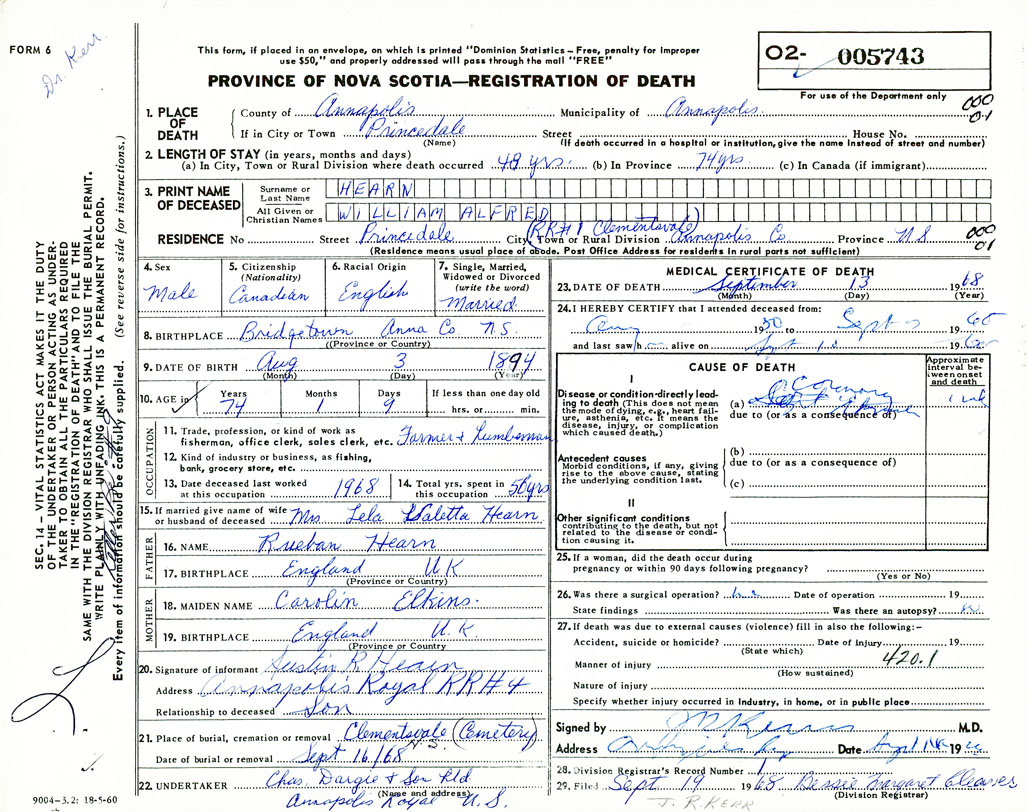 FORM 6
Dr. Kerr.
This form, if placed in an envelope, on which is printed "Dominion Statistics – Free, penalty for improper
use $50," and properly addressed will pass through the mail "FREE"
PROVINCE OF NOVA SCOTIA—REGISTRATION OF DEATH
O2- 005743
For use of the Department only
000
01
SEC. 14 – VITAL STATISTICS ACT MAKES IT THE DUTY
OF THE UNDERTAKER OR PERSON ACTING AS UNDER-
TAKER TO OBTAIN ALL THE PARTICULARS REQUIRED
IN THE "REGISTRATION OF DEATH" AND TO FILE THE
SAME WITH THE DIVISION REGISTRAR WHO SHALL ISSUE THE BURIAL PERMIT.
WRITE PLAINLY WITH UNFADING INK. THIS IS A PERMANENT RECORD.
Every item of information should be carefully supplied. (See reverse side for instructions.)
1. PLACE OF DEATH
County of Annapolis Municipality of Annapolis.
If in City or Town Princedale Street House No.
(Name) (If death occurred in a hospital or institution, give the name instead of street and number)
2. LENGTH OF STAY (in years, months and days)
(a) In City, Town or Rural Division where death occurred 48 yrs. (b) In Province 74 yrs. (c) In Canada (if immigrant)
3. PRINT NAME OF DECEASED
Surname or Last Name HEARN
All Given or Christian Names WILLIAM ALFRED
(RR#1 Clementsvale)
RESIDENCE No Street Princedale City, Town or Rural Division Annapolis Co Province N S
000
01
(Residence means usual place of abode. Post Office Address for residents in rural parts not sufficient)
4. Sex Male
5. Citizenship (Nationality) Canadian
6. Racial Origin English
7. Single, Married, Widowed or Divorced (write the word) Married
8. BIRTHPLACE Bridgetown Anna Co. N.S.
(Province or Country)
9. DATE OF BIRTH Aug 3 1894
(Month) (Day) (Year)
10. AGE in Years 74 Months 1 Days 9 If less than one day old hrs. or min.
OCCUPATION
11. Trade, profession, or kind of work as
fisherman, office clerk, sales clerk, etc. Farmer & Lumberman
12. Kind of industry or business, as fishing,
bank, grocery store, etc.
13. Date deceased last worked at this occupation 1968
14. Total yrs. spent in this occupation 50 yrs
15. If married give name of wife
or husband of deceased Mrs Lela Valetta Hearn
FATHER
16. NAME Rueban Hearn
17. BIRTHPLACE England U K
(Province or Country)
MOTHER
18. MAIDEN NAME Carolin Elkins.
19. BIRTHPLACE England U. K.
(Province or Country
20. Signature of informant Austin R Hearn
Address Annapolis Royal RR#4
Relationship to deceased Son
21. Place of burial, cremation or removal Clementsvale (Cemetery) N.S.
Date of burial or removal Sept 16/68
22. UNDERTAKER Chas. Dargie & Son Ltd
(Name and address)
Annapolis Royal N.S.
9004–3.2: 18-5-60
MEDICAL CERTIFICATE OF DEATH
23. DATE OF DEATH September 13 1968
(Month) (Day) (Year)
24. I HEREBY CERTIFY that I attended deceased from:
1950 to Sept
and last saw h alive on 19
CAUSE OF DEATH
Approximate interval between onset and death
I
Disease or condition directly leading to death (This does not mean the mode of dying, e.g., heart failure, asthenia, etc. It means the disease, injury, or complication which caused death.)
(a) Coronary
due to (or as a consequence of)
Antecedent causes
Morbid conditions, if any, giving rise to the above cause, stating the underlying condition last.
(b)
due to (or as a consequence of)
(c)
II
Other significant conditions
contributing to the death, but not related to the disease or condition causing it.
25. If a woman, did the death occur during
pregnancy or within 90 days following pregnancy?
(Yes or No)
26. Was there a surgical operation? no Date of operation 19
State findings Was there an autopsy? no
27. If death was due to external causes (violence) fill in also the following:–
Accident, suicide or homicide? Date of injury 19
(State which)
420.1
Manner of injury
(How sustained)
Nature of injury
Specify whether injury occurred in industry, in home, or in public place
Signed by M.D.
Address Date 19
28. Division Registrar's Record Number 1
29. Filed Sept 19 1968 Bessie Margaret Cleaves
(Division Registrar)
J. R. KERR